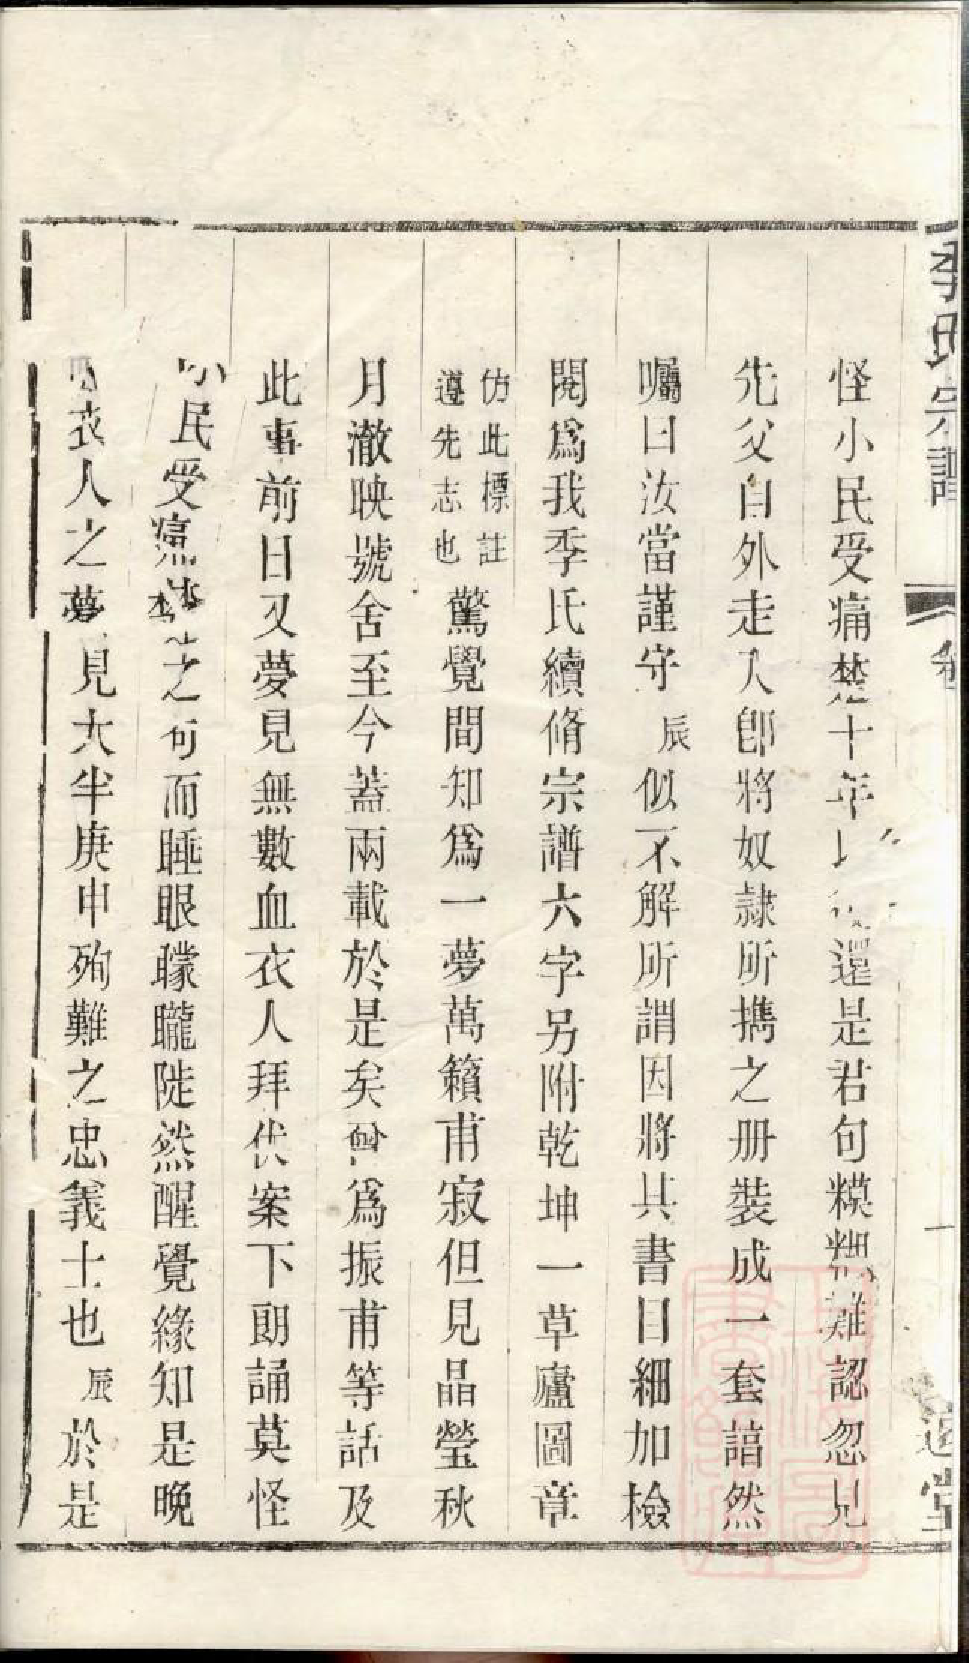 季氏宗譜
怪小民受痛楚十年還是君句糢糊難認忽見
先父自外走入卽將奴隷所擕之册裝成一套諳然
囑曰汝當謹守辰似不解所謂因將其書目細加檢
閱爲我季氏續脩宗譜六字另附乾坤一草廬圖章
仿此標註
遵先志也
驚覺間知爲一夢萬籟甫寂但見晶瑩秋
月澈映號舍至今蓋兩載於是矣爲振甫等話及
此事前日又夢見無數血衣人拜伏案下朗誦莫怪
小民受痛楚之句而睡眼矇矓陡然醒覺緣知是晚
衣人之夢見大半庚申殉難之忠義士也辰於是